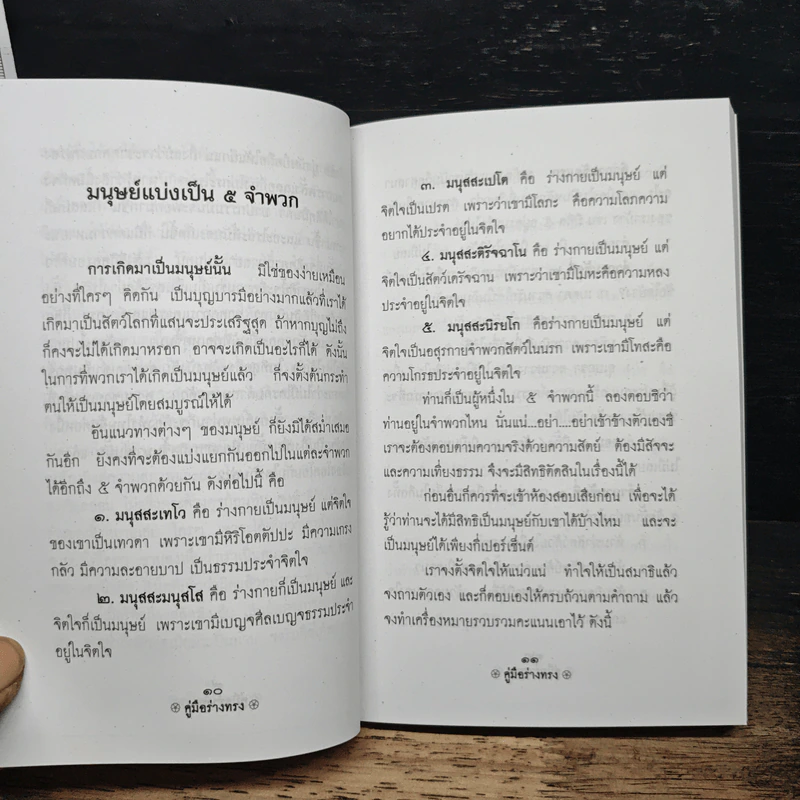 มนุษย์แบ่งเป็น ๕ จำพวก
การเกิดมาเป็นมนุษย์นั้น มิใช่ของง่ายเหมือน
อย่างที่ใครๆ คิดกัน เป็นบุญบารมีอย่างมากแล้วที่เราได้
เกิดมาเป็นสัตว์โลกที่แสนจะประเสริฐสุด ถ้าหากบุญไม่ถึง
ก็คงจะไม่ได้เกิดมาหรอก อาจจะเกิดเป็นอะไรก็ได้ ดังนั้น
ในการที่พวกเราได้เกิดเป็นมนุษย์แล้ว ก็จงตั้งต้นกระทำ
ตนให้เป็นมนุษย์โดยสมบูรณ์ให้ได้
อันแนวทางต่างๆ ของมนุษย์ ก็ยังมิได้สม่ำเสมอ
กันอีก ยังคงที่จะต้องแบ่งแยกกันออกไปในแต่ละจำพวก
ได้อีกถึง ๕ จำพวกด้วยกัน ดังต่อไปนี้ คือ
๑. มนุสสะเทโว คือ ร่างกายเป็นมนุษย์ แต่จิตใจ
ของเขาเป็นเทวดา เพราะเขามีหิริโอตตัปปะ มีความเกรง
กลัว มีความละอายบาป เป็นธรรมประจำจิตใจ
๒. มนุสสะมนุสโส คือ ร่างกายก็เป็นมนุษย์ และ
จิตใจก็เป็นมนุษย์ เพราะเขามีเบญจศีลเบญจธรรมประจำ
อยู่ในจิตใจ
๑๐
คู่มือร่างทรง
๓. มนุสสะเปโต คือ ร่างกายเป็นมนุษย์ แต่
จิตใจเป็นเปรต เพราะว่าเขามีโลภะ คือความโลภความ
อยากได้ประจำอยู่ในจิตใจ
๔. มนุสสะติรัจฉาโน คือ ร่างกายเป็นมนุษย์ แต่
จิตใจเป็นสัตว์เดรัจฉาน เพราะว่าเขามีโมหะคือความหลง
ประจำอยู่ในจิตใจ
๕. มนุสสะนิรยโก คือร่างกายเป็นมนุษย์ แต่
จิตใจเป็นอสุรกายจำพวกสัตว์ในนรก เพราะเขามีโทสะคือ
ความโกรธประจำอยู่ในจิตใจ
ท่านก็เป็นผู้หนึ่งใน ๕ จำพวกนี้ ลองตอบซิว่า
ท่านอยู่ในจำพวกไหน นั่นแน่...อย่า....อย่าเข้าข้างตัวเองซิ
เราจะต้องตอบตามความจริงด้วยความสัตย์ ต้องมีสัจจะ
และความเที่ยงธรรม จึงจะมีสิทธิตัดสินในเรื่องนี้ได้
ก่อนอื่นก็ควรที่จะเข้าห้องสอบเสียก่อน เพื่อจะได้
รู้ว่าท่านจะได้มีสิทธิเป็นมนุษย์กับเขาได้บ้างไหม และจะ
เป็นมนุษย์ได้เพียงกี่เปอร์เซ็นต์
เราจงตั้งจิตใจให้แน่วแน่ ทำใจให้เป็นสมาธิแล้ว
จงถามตัวเอง และก็ตอบเองให้ครบถ้วนตามคำถาม แล้ว
จงทำเครื่องหมายรวบรวมคะแนนเอาไว้ ดังนี้
๑๑
คู่มือร่างทรง